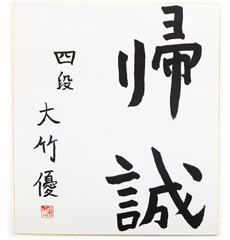 帰誠
四段
大竹優